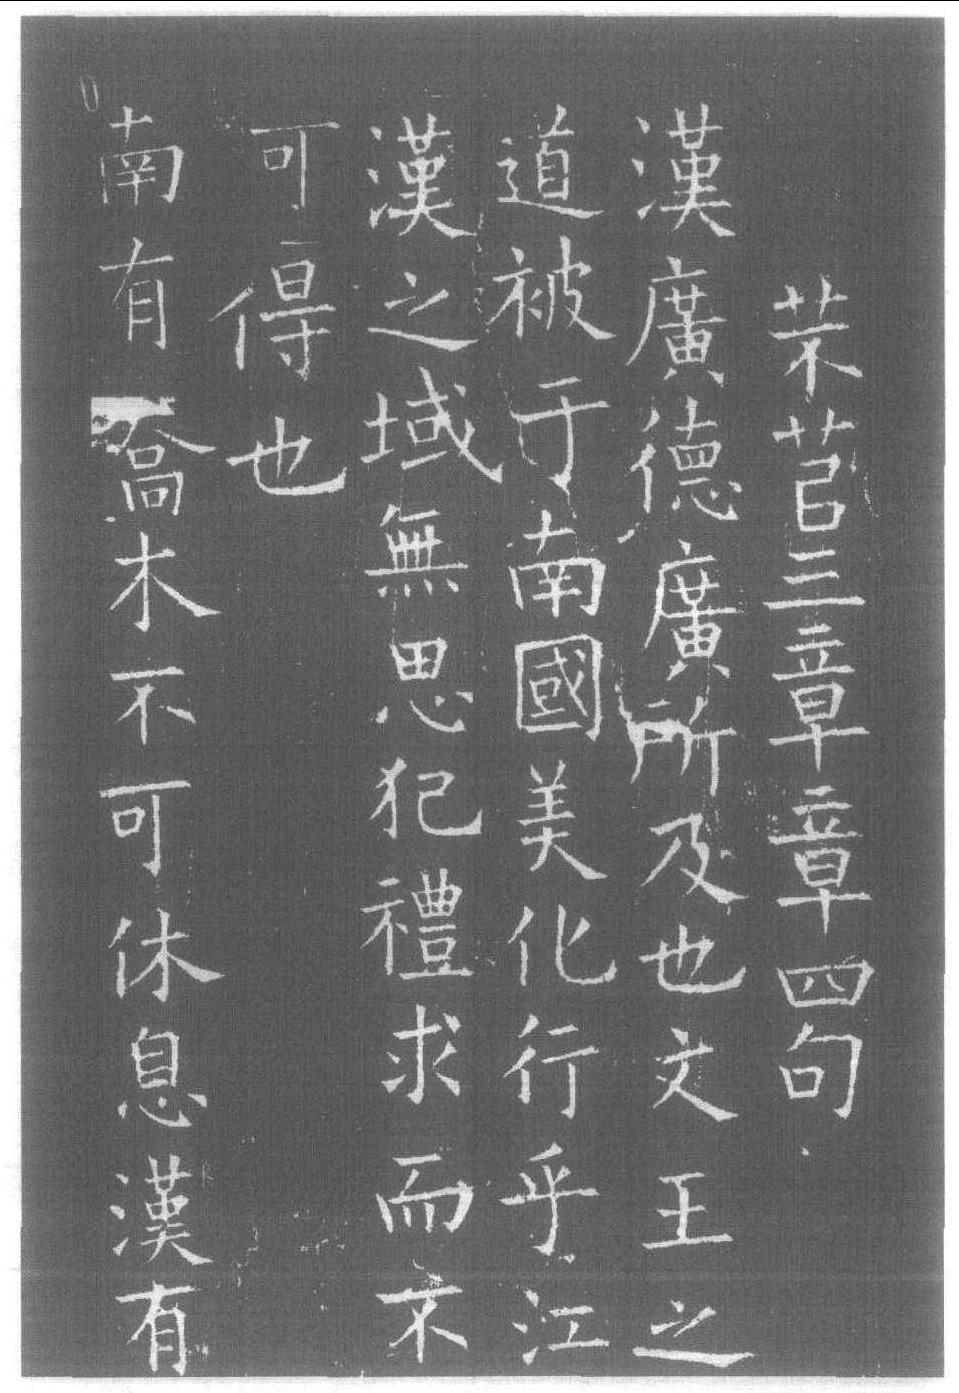 芣苢三章章四句
漢廣德廣所及也文王之
道被于南國美化行乎江
漢之域無思犯禮求而不
可得也
南有喬木不可休息漢有